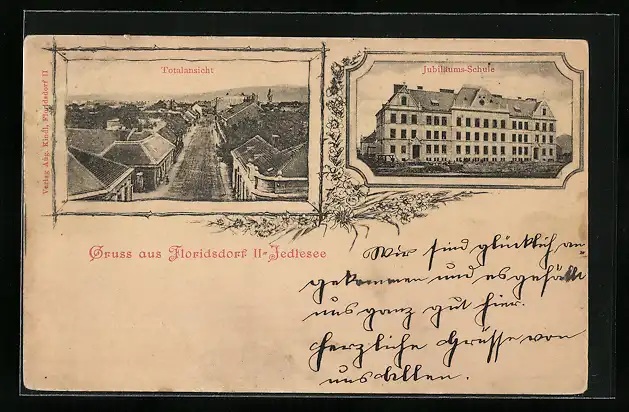 Totalansicht
Jubiläums-Schule
Verlag Aug. Kindl, Floridsdorf II
Gruss aus Floridsdorf II-Jedlesee
Wir sind glücklich an-
gekommen und es gefällt
uns ganz gut hier.
Herzliche Grüsse von
uns allen.